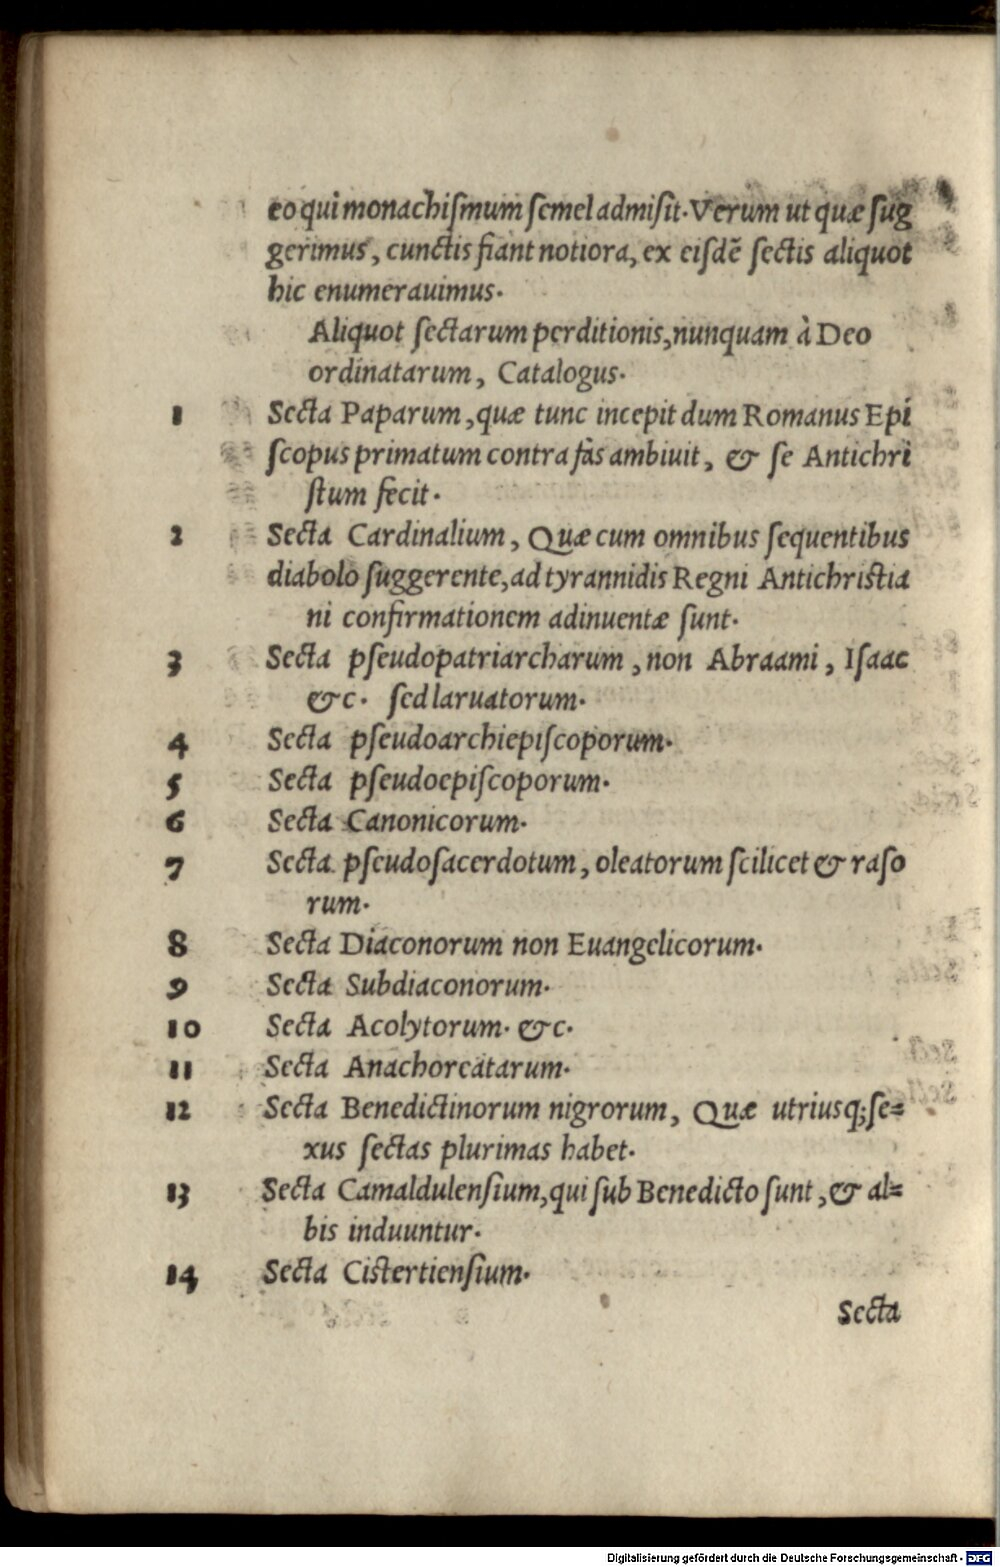 eo qui monachiſmum ſemel admiſit. Verùm ut quæ ſug
gerimus, cunctis fiant notiora, ex eiſdẽ ſectis aliquot
hic enumerauimus.
Aliquot ſectarum perditionis, nunquam à Deo
ordinatarum, Catalogus.
1 Secta Paparum, quæ tunc incepit dum Romanus Epi
ſcopus primatum contra fàs ambiuit, & ſe Antichri
ſtum fecit.
2 Secta Cardinalium, Quæ cum omnibus ſequentibus
diabolo ſuggerente, ad tyrannidis Regni Antichriſtia
ni confirmationem adinuentæ ſunt.
3 Secta pſeudopatriarcharum, non Abraami, Iſaac
&c. ſed laruatorum.
4 Secta pſeudoarchiepiſcoporum.
5 Secta pſeudoepiſcoporum.
6 Secta Canonicorum.
7 Secta pſeudoſacerdotum, oleatorum ſcilicet & raſo
rum.
8 Secta Diaconorum non Euangelicorum.
9 Secta Subdiaconorum.
10 Secta Acolytorum. &c.
11 Secta Anachoreatarum.
12 Secta Benedictinorum nigrorum, Quæ utriusq; ſe=
xus ſectas plurimas habet.
13 Secta Camaldulenſium, qui ſub Benedicto ſunt, & al=
bis induuntur.
14 Secta Ciſtertienſium.
Secta
Digitalisierung gefördert durch die Deutsche Forschungsgemeinschaft - DFG